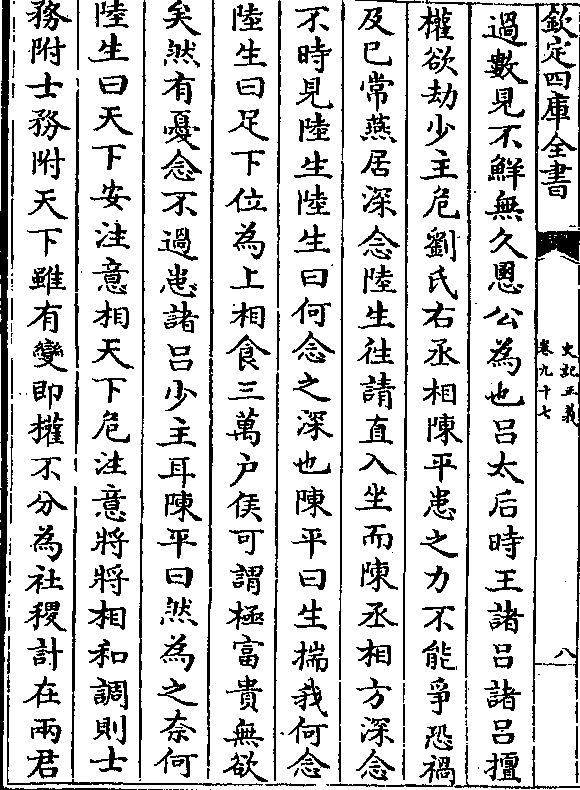 欽定四庫全書
史記正義
卷九十七
八
過數見不鮮無久慁公為也呂太后時王諸呂諸呂擅
權欲劫少主危劉氏右丞相陳平患之力不能爭恐禍
及已常燕居深念陸生往請直入坐而陳丞相方深念
不時見陸生陸生曰何念之深也陳平曰生揣我何念
陸生曰足下位為上相食三萬户侯可謂極富貴無欲
矣然有憂念不過患諸呂少主耳陳平曰然為之奈何
陸生曰天下安注意相天下危注意將將相和調則士
務附士務附天下雖有變即權不分為社稷計在兩君